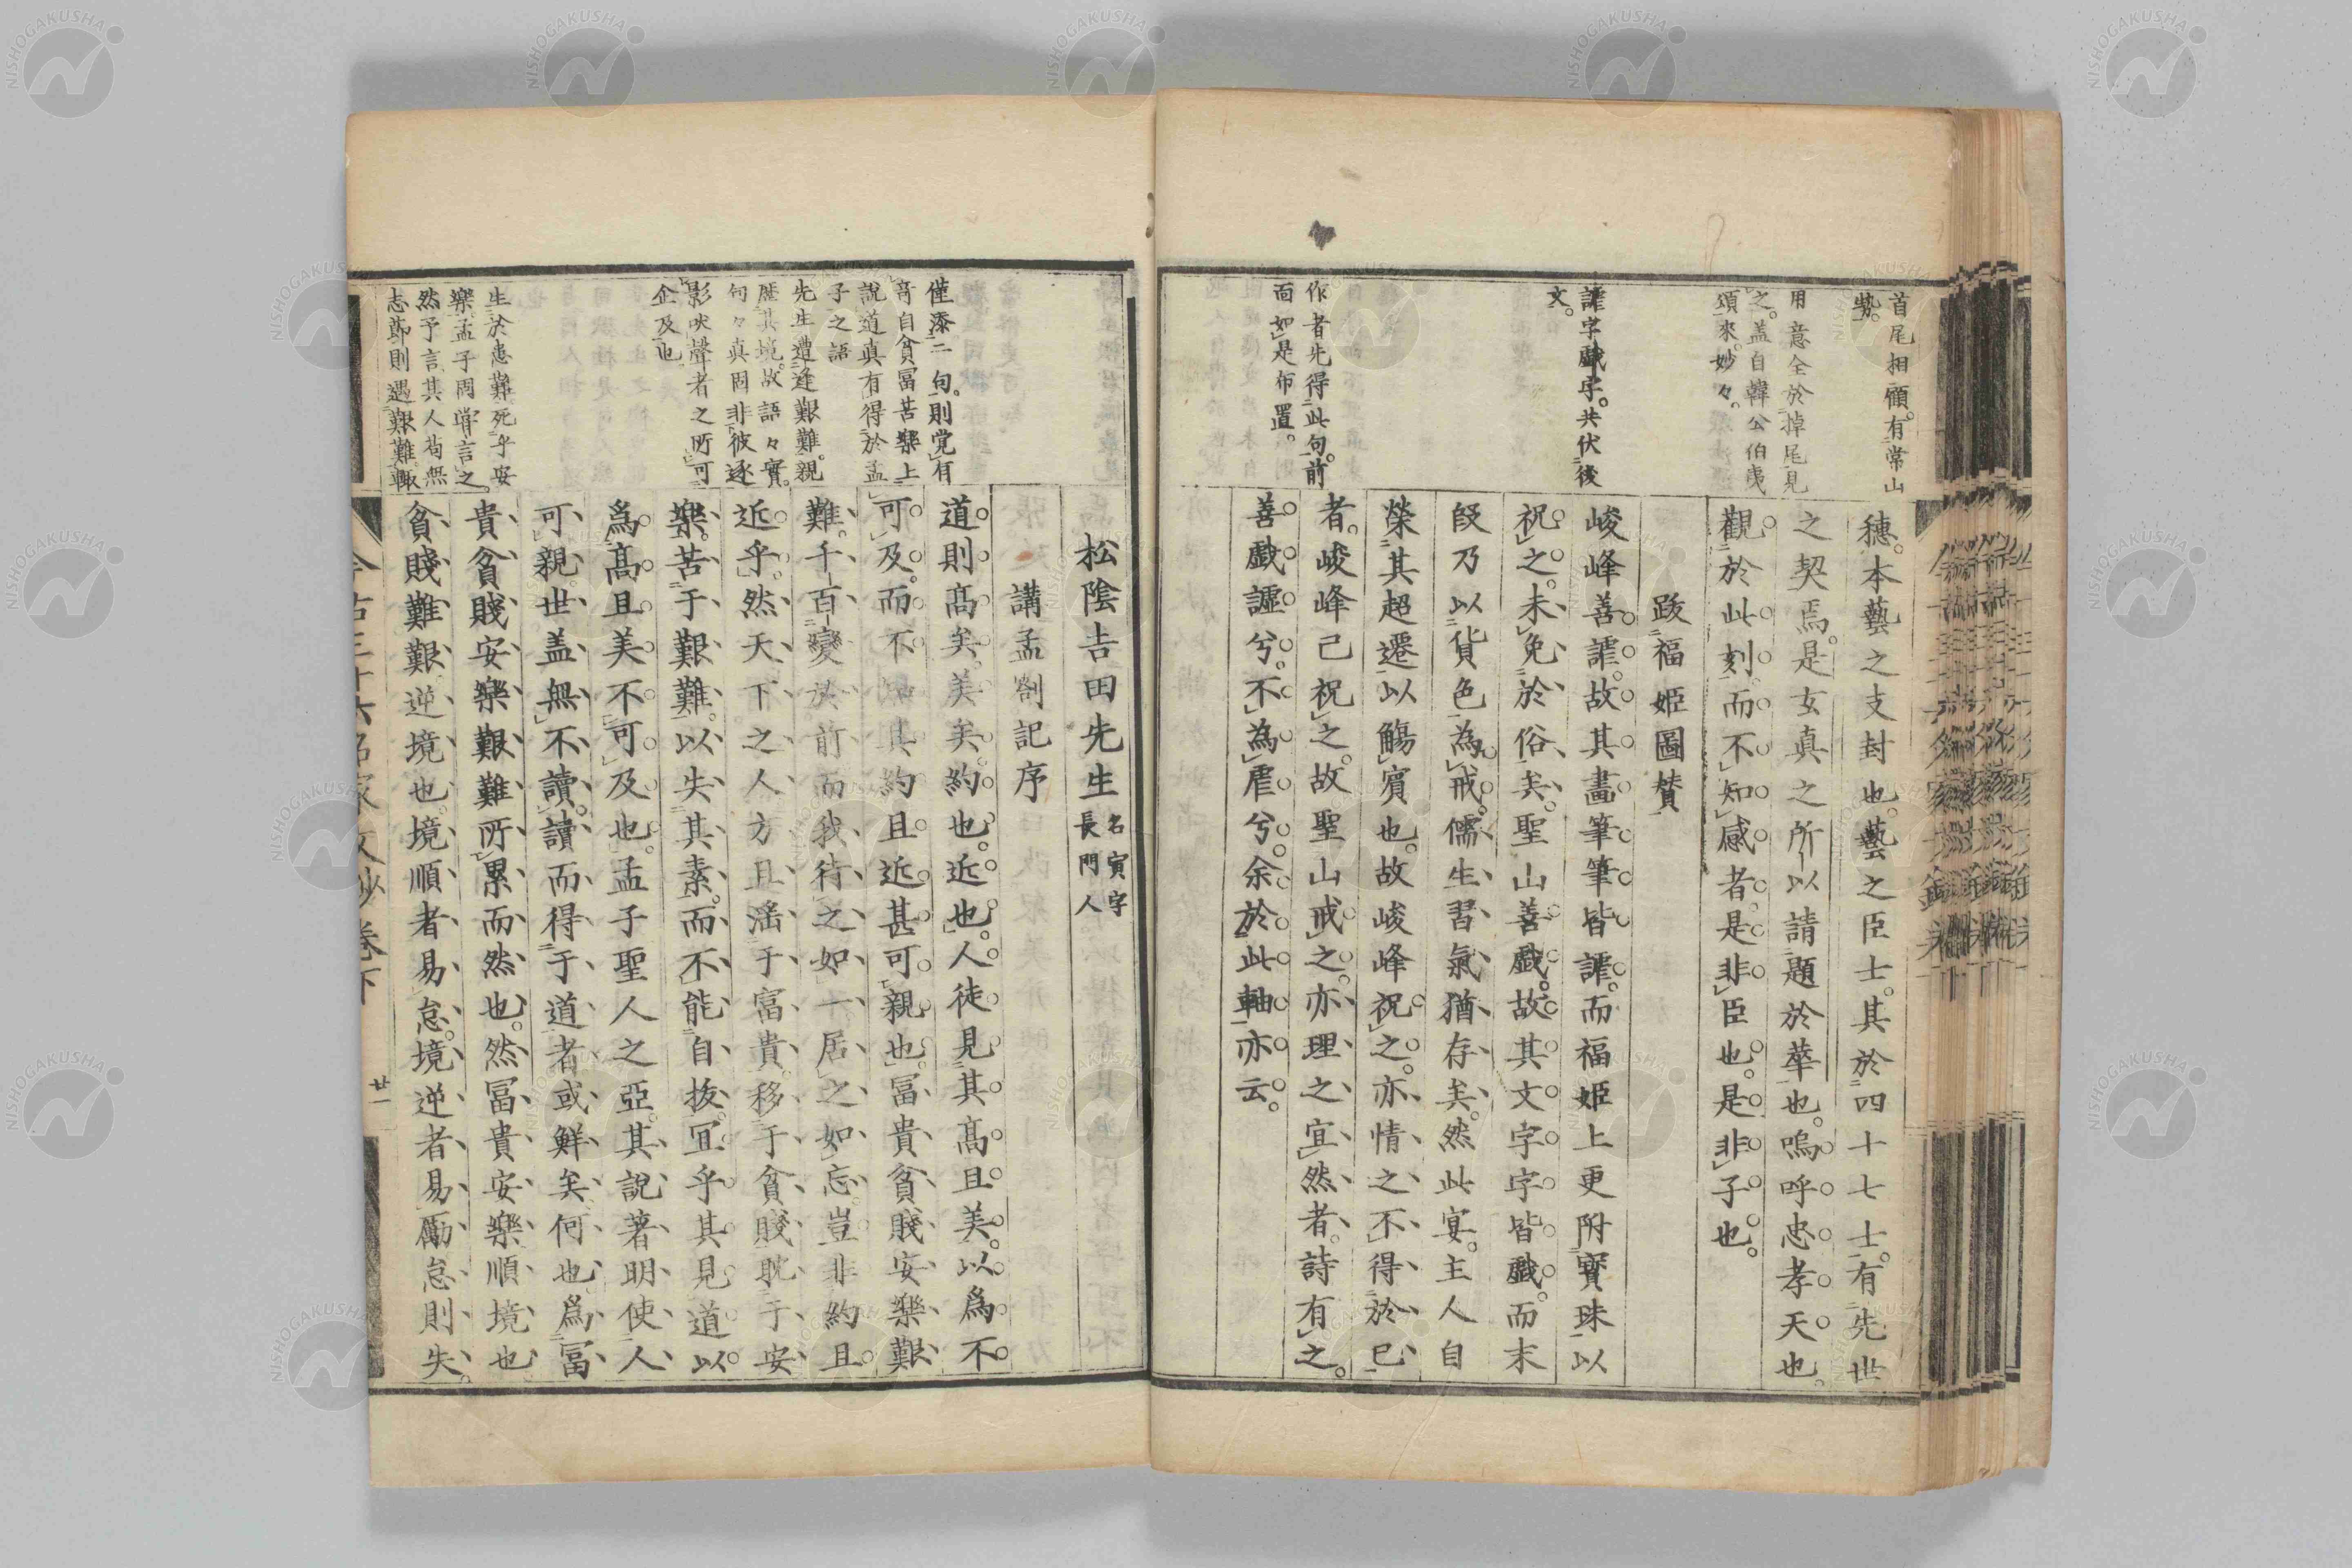 首尾相顧。有常山
勢。
用意全於掉尾見
之。盖自韓公伯夷
頌來。妙々。
謔字戲字。共伏後
文。
作者先得此句。前
面如是布置。
穗。本藝之支封也。藝之臣士。其於四十七士。有先世
之契焉。是玄真之所以請題於華也。嗚呼忠孝天也。
觀於此刻。而不知感者。是非臣也。是非子也。
跋福姬圖贊
峻峰善謔。故其畫筆筆皆謔。而福姬上更附寶珠以
祝之。未免於俗矣。聖山善戲。故其文字字皆戲。而末
段乃以貨色為戒。儒生習氣猶存矣。然此宴。主人自
榮其超遷以觴賓也。故峻峰祝之。亦情之不得於已
者。峻峰已祝之。故聖山戒之。亦理之宜然者。詩有之。
善戲謔兮。不為虐兮。余於此軸亦云。
僅添二句。則覚有
音自貧富苦樂上
說道真有得於孟
子之語
先生遭逢艱難。親
歷其境。故語々實。
句々真。固非彼逐
影吠聲者之所可
企及也
生於患難死乎安
樂孟子固嘗言之。
然予言其人苟無
志節則遇艱難。輙
松陰吉田先生 名寅字
長門人
講孟劄記序
道則高矣。美矣。約也。近也。人徒見其高且美。以為不
可及。而不知其約且近。甚可親也。富貴貧賤安樂艱
難。千百變於前。而我待之如一。居之如忘。豈非約且
近乎。然天下之人。方且淫于富貴。移于貧賤。耽于安
樂。苦于艱難。以失其素。而不能自拔。宜乎其見道以
為高且美不可及也。孟子聖人之亞。其說著明。使人
可親。世盖無不讀。讀而得于道者。或鮮矣。何也。為富
貴貧賤安樂艱難所累而然也。然富貴安樂順境也
貧賤難艱逆境也。境順者易怠。境逆者易勵。怠則失。
今古三十六名家文鈔卷下
廿一